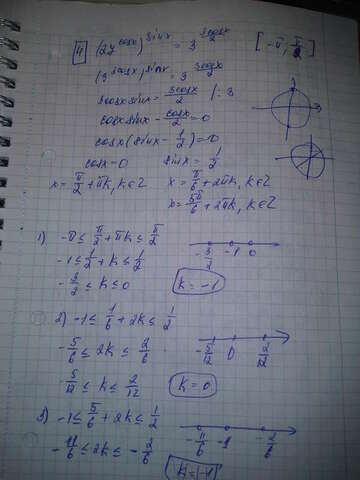 4 (27^cosx)^sinx = 3^(3cosx/2) [-π; π/2]
(3^3cosx)^sinx = 3^(3cosx/2)
3cosx sinx = 3cosx/2 |: 3
cosx sinx - cosx/2 = 0
cosx (sinx - 1/2) = 0
cosx = 0 sinx = 1/2
x = π/2 + πk, k∈Z x = π/6 + 2πk, k∈Z
x = 5π/6 + 2πk, k∈Z
1) -π ≤ π/2 + πk ≤ π/2
-1 ≤ 1/2 + k ≤ 1/2 -3/2 -1 0
-3/2 ≤ k ≤ 0 k = -1
2) -1 ≤ 1/6 + 2k ≤ 1/2
-5/6 ≤ 2k ≤ 2/6 -5/12 0 2/12
-5/12 ≤ k ≤ 2/12 k = 0
3) -1 ≤ 5/6 + 2k ≤ 1/2
-11/6 ≤ 2k ≤ -2/6 -11/6 -1 -2/6
k = -1